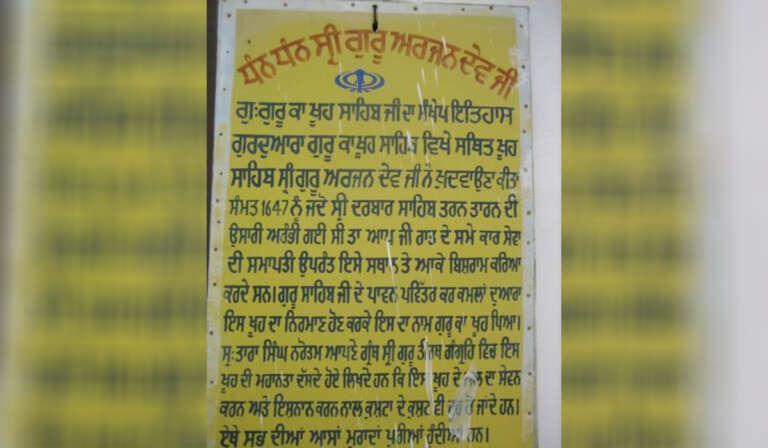 ਧੰਨ ਧੰਨ ਸ੍ਰੀ ਗੁਰੂ ਅਰਜਨ ਦੇਵ ਜੀ
ਗੁ:ਗੁਰੂ ਕਾ ਖੂਹ ਸਾਹਿਬ ਜੀ ਦਾ ਸੰਖੇਪ ਇਤਿਹਾਸ
ਗੁਰਦੁਆਰਾ ਗੁਰੂ ਕਾ ਖੂਹ ਸਾਹਿਬ ਵਿਖੇ ਸਥਿਤ ਖੂਹ
ਸਾਹਿਬ ਸ੍ਰੀ ਗੁਰੂ ਅਰਜਨ ਦੇਵ ਜੀ ਨੇ ਖੁਦਵਾਉਣਾ ਕੀਤਾ
ਸੰਮਤ 1647 ਨੂੰ ਜਦੋਂ ਸ੍ਰੀ ਦਰਬਾਰ ਸਾਹਿਬ ਤਰਨ ਤਾਰਨ ਦੀ
ਉਸਾਰੀ ਅਰੰਭੀ ਗਈ ਸੀ ਤਾਂ ਆਪ ਜੀ ਰਾਤ ਦੇ ਸਮੇਂ ਕਾਰ ਸੇਵਾ
ਦੀ ਸਮਾਪਤੀ ਉਪਰੰਤ ਇਸੇ ਸਥਾਨ ਤੇ ਆਕੇ ਬਿਸ਼ਰਾਮ ਕਰਿਆ
ਕਰਦੇ ਸਨ। ਗੁਰੂ ਸਾਹਿਬ ਜੀ ਦੇ ਪਾਵਨ ਪਵਿੱਤਰ ਕਰ ਕਮਲਾਂ ਦੁਆਰਾ
ਇਸ ਖੂਹ ਦਾ ਨਿਰਮਾਣ ਹੋਣ ਕਰਕੇ ਇਸ ਦਾ ਨਾਮ ਗੁਰੂ ਕਾ ਖੂਹ ਪਿਆ।
ਸ੍ਰ: ਤਾਰਾ ਸਿੰਘ ਨਰੋਤਮ ਆਪਣੇ ਗ੍ਰੰਥ ਸ੍ਰੀ ਗੁਰੂ ਤੀਰਥ ਵਿਚ ਇਸ
ਖੂਹ ਦੀ ਮਹਾਨਤਾ ਦੱਸਦੇ ਹੋਏ ਲਿਖਦੇ ਹਨ ਕਿ ਇਸ ਖੂਹ ਦੇ ਜਲ ਦਾ ਸੇਵਨ
ਕਰਨ ਅਤੇ ਇਸ਼ਨਾਨ ਕਰਨ ਨਾਲ ਕੁਸ਼ਟਾਂ ਦੇ ਕੁਸ਼ਟ ਵੀ ਦੂਰ ਹੋ ਜਾਂਦੇ ਹਨ।
ਏਥੇ ਸਭ ਦੀਆਂ ਆਸਾਂ ਮੁਰਾਦਾਂ ਪੂਰੀਆਂ ਹੁੰਦੀਆਂ ਹਨ।